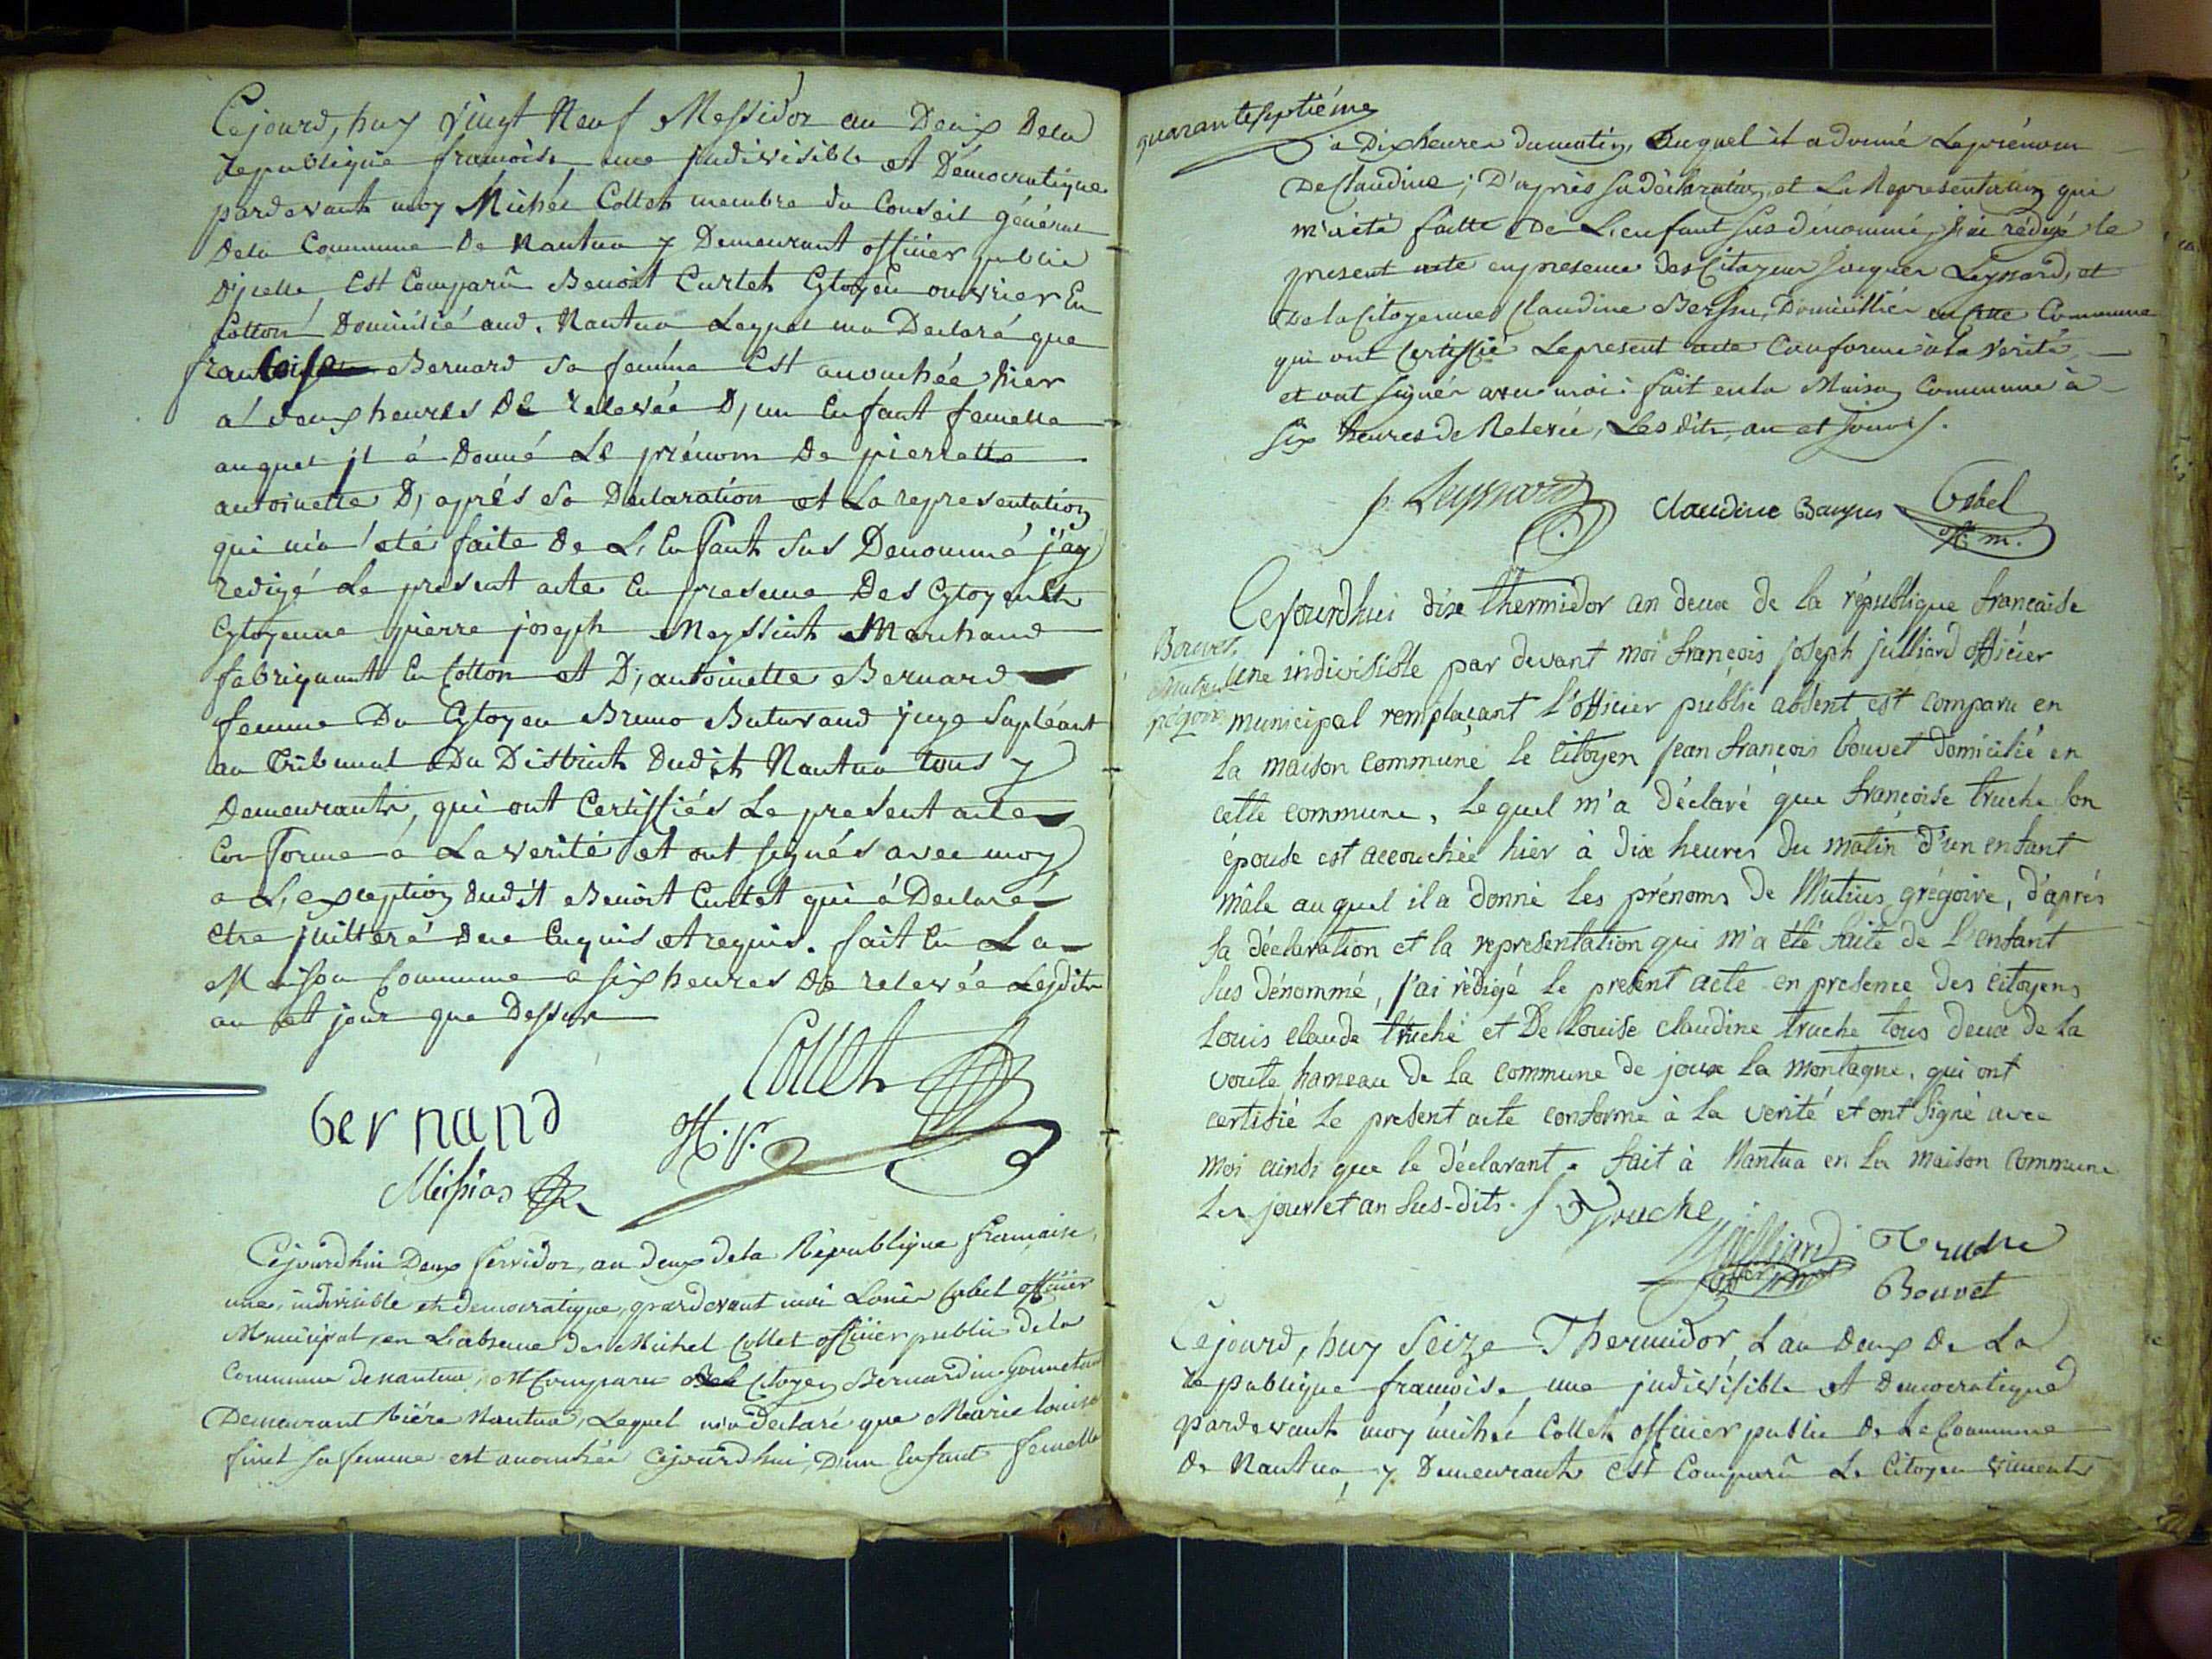 Cejourd, huy vingt Neuf Messidor an Deux Dela
republique françoise une jndivisible et Démocratique
pardevant moy Michel Collet membre du Conseil général
Dela Commune De Nantua y Demeurant officier public
D'jcelle, Est Comparû Benoit Curtet Cytoyen ouvrier En
Cotton Domicilié aud. Nantua Lequel ma Declaré que
francoise Bernard sa femme Est acouchée hier
a deux heures De relevée D, un Enfant femelle
auquel jl à Donné Le prénom De pierrette
antoinette D, aprés sa Déclaration et La representation
qui m'a eté faite De L, Enfant sus Denommé j'ay
redigé Le present acte En presence Des Cytoyen Et
Cytoyenne pierre joseph Marchand
fabriquant En Cotton et D, antoinette Bernard
femme Du Cytoyen Bruno juge Supléant
au Tribunal Du District Dudit Nantua tous y
Demeurants, qui ont Certiffiés Le present acte
Conforme à La verité et ont signés avec moy
a L, exception dudit Benoit Curtet qui à Declaré
Etre jllitteré De ce Enquis et requis. fait En La
Maison Commune a six heures De relevée Lesdits
an et jour que Dessus
Collet
bernand
Off. p.
Messias
Cejourdhui Deux fervidor, an deux dela République francaise,
une, indivisible et democratique, pardevant moi Louis officier
Municipal, en L'absence de Michel Collet officier public dela
Commune de nantua, est Comparu Le Citoyen Bernardin
Demeurant riére Nantua, Lequel m'a declaré que Marie Louise
finet sa femme est acouchée Cejourdhui, D'un Enfant femelle
quarante septiéme
à Dix heures du matin, Auquel il a donné Le prénom
De Claudine; D'aprés sa déclaration, et La Representation qui
m'a eté faitte De L'enfant sus dénommé, j'ai rédigé le
present acte en presence des Citoyens Jacques Leyssard, et
De la Citoyenne Claudine Domicilliés en Cette Commune
qui ont Certiffié Le present acte Conforme à la Verité,
et ont signés avec moi. fait en la Maison Commune à
six heures de Relevée, Les dits, an et jour.
j. Leyssard Claudine
Off. m.
Cejourdhui dix thermidor an deux de la république francaise
Bouvet
une indivisible par devant moi françois joseph julliard officier
Mutius
grégoire
municipal remplaçant l'officier public absent est comparu en
la maison commune le citoyen jean françois bouvet domicilié en
cette commune, Lequel m'a déclaré que françoise truche son
épouse est accouchée hier à dix heures du matin d'un enfant
mâle auquel il a donné les prénoms de Mutius grégoire, d'aprés
sa déclaration et la representation qui m'a été faite de l'enfant
sus dénommé, j'ai rédigé le present acte en presence des citoyens
Louis claude truche et De Louise claudine truche tous deux de la
voute hameau de la commune de joux la montagne, qui ont
certifié le present acte conforme à la verité et ont signé avec
moi ainsi que le déclarant. fait à Nantua en la maison commune
Les jour et an sus-dits. Truche
Julliard Truche
off. m. Bouvet
Cejourd, huy Seize Thermidor L an deux De La
republique françoise une jndivisible et Democratique
pardevant moy michel Collet officier public De La Commune
De Nantua, y Demeurant est Comparû Le Citoyen vincent